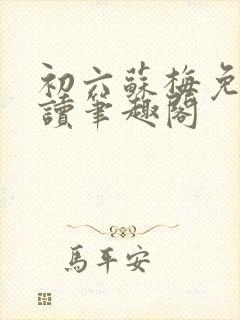 初六蘇梅免
讀筆趣閣
馬平安